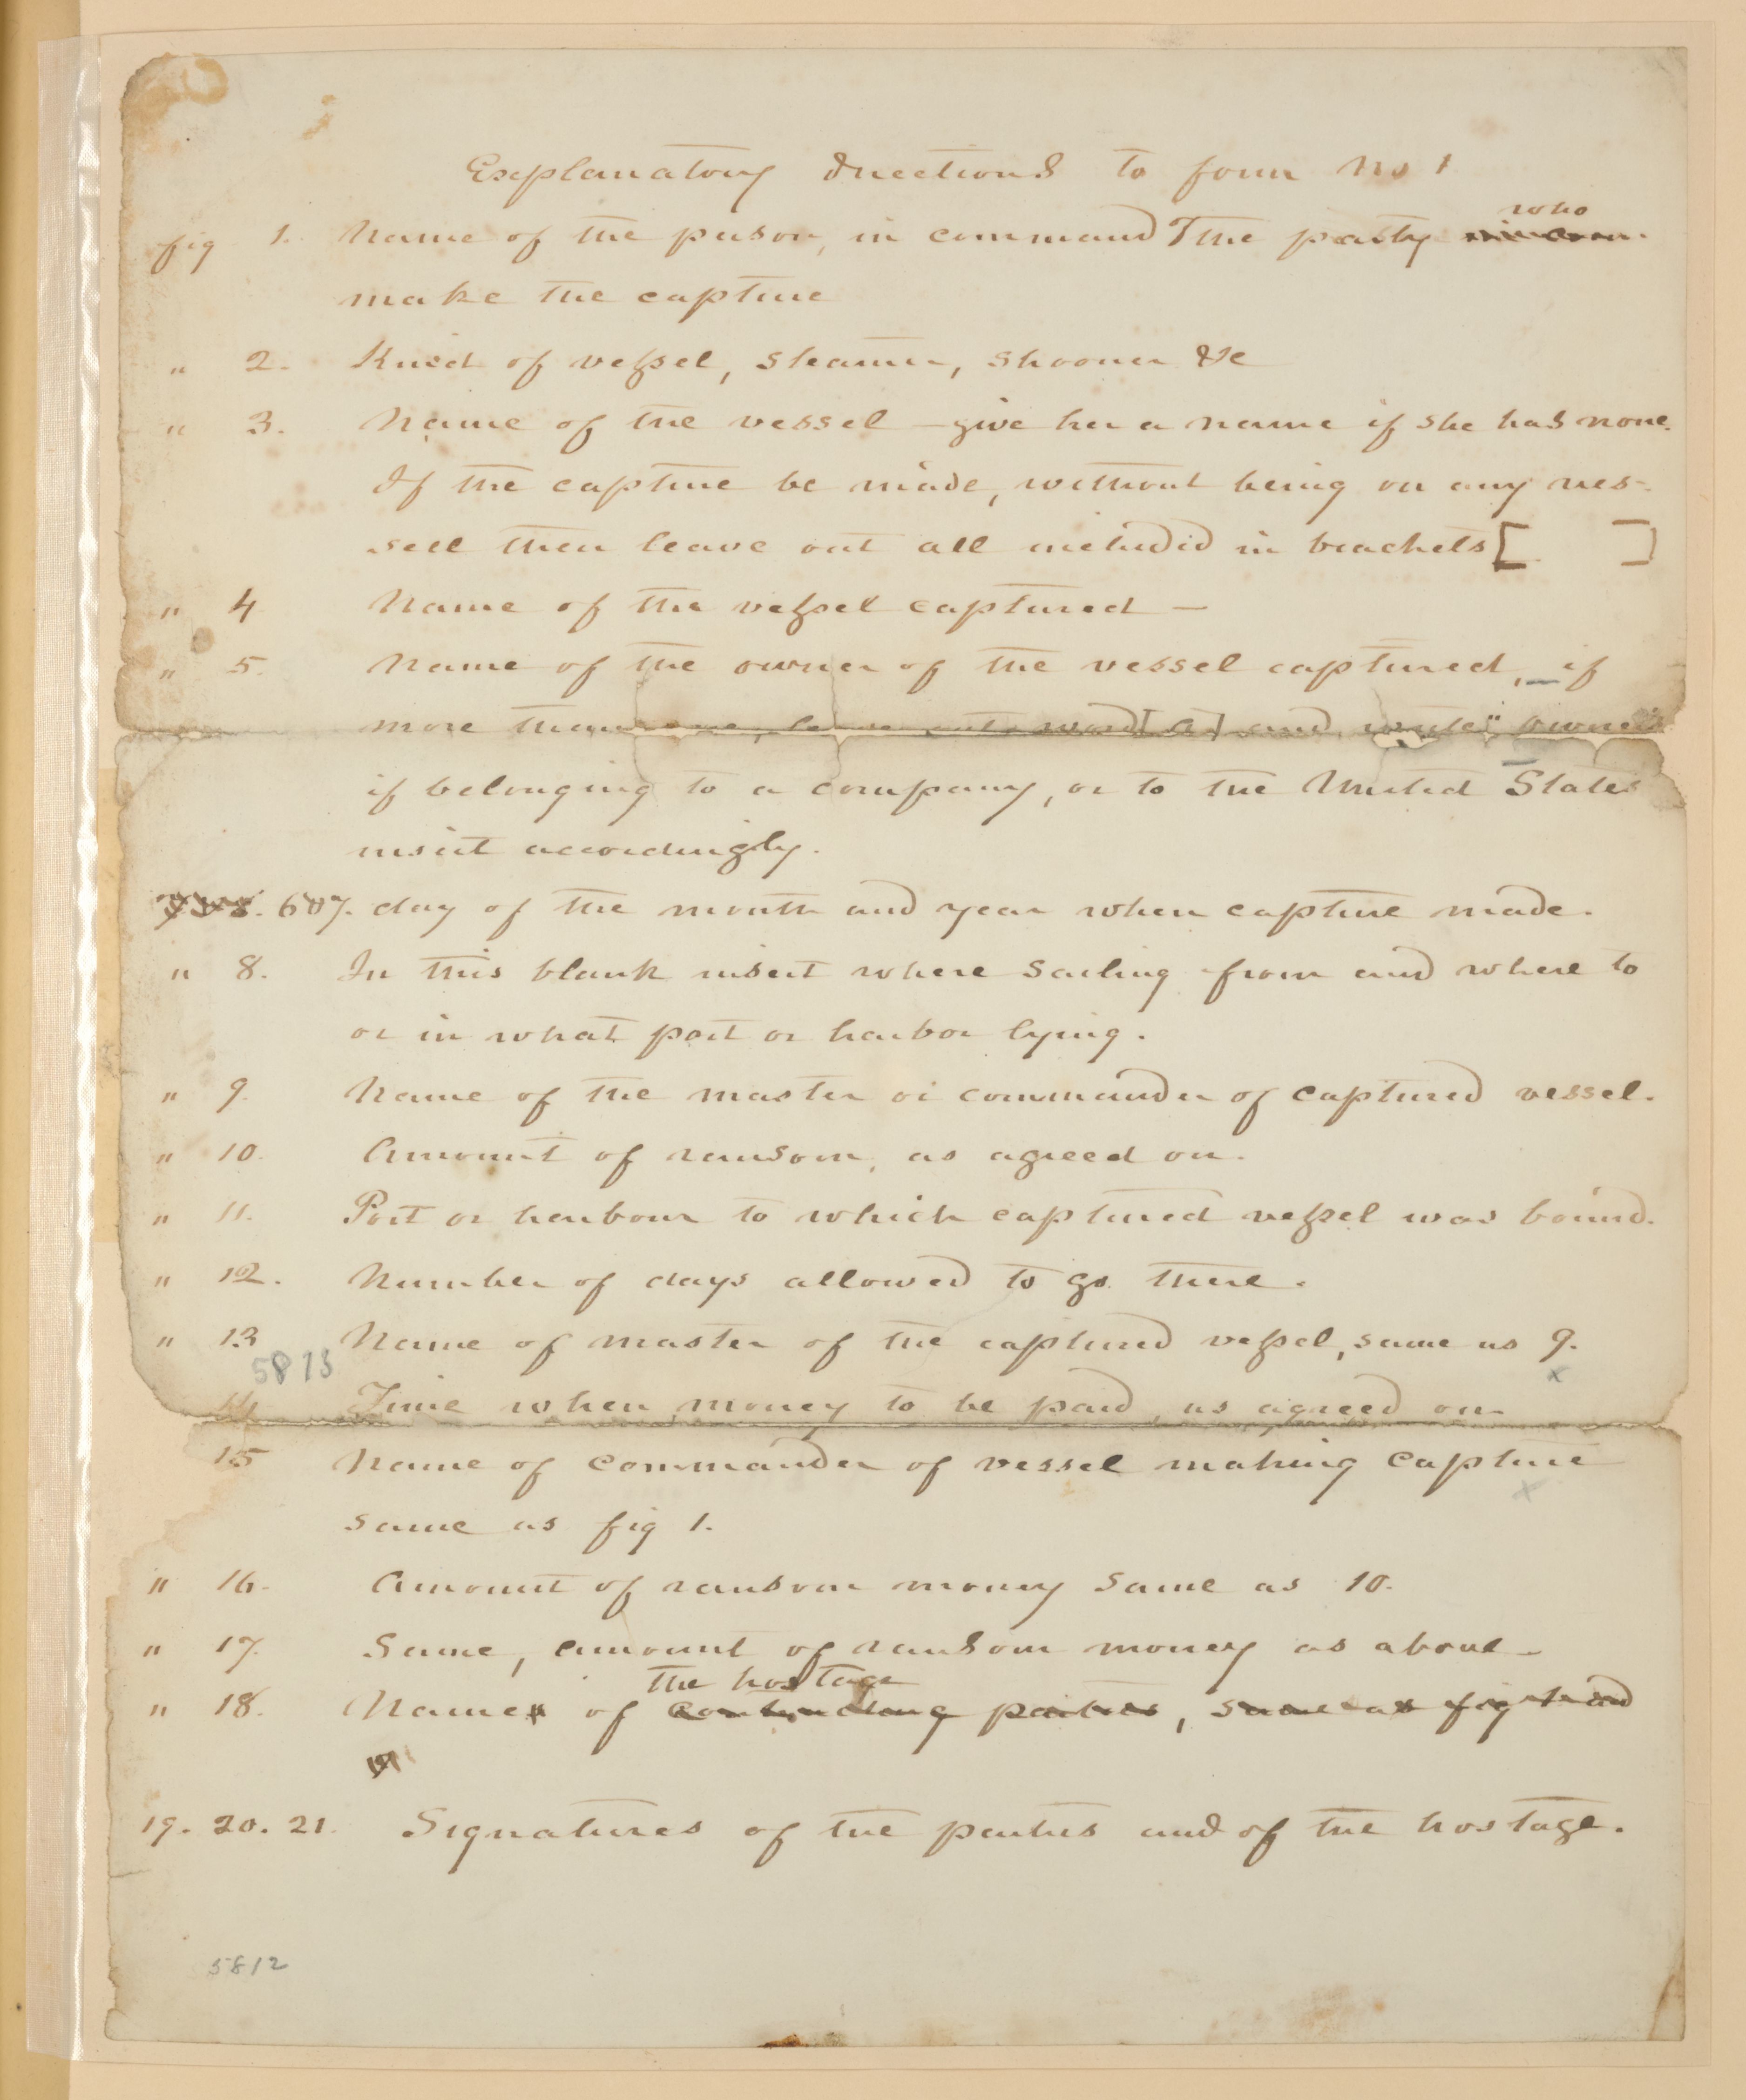 Explanatory directions to form No 1
fig 1. Name of the person, in command of the party who
make the capture
" 2. Kind of vessel, steamer, shooner &c
" 3. Name of the vessel – give her a name if she has none.
If the capture be made, without being on any ves-
sell then leave out all included in brackets [ ]
" 4 Name of the vessel captured —
" 5. Name of the owner of the vessel captured, – if
more than one, leave out word [a] and write "owners
if belonging to a company, or to the United States
insert accordingly.
6 & 7. day of the month and year when capture made.
" 8. In this blank insert where sailing from and where to
or in what port or harbor lying.
" 9. Name of the master or commander of captured vessel.
" 10. Amount of ransom, as agreed on.
" 11. Port or harbour to which captured vessel was bound.
" 12. Number of days allowed to go there.
" 13 Name of master of the captured vessel, same as 9.
5813 x
14 Time when money to be paid, as agreed on
15 Name of commander of vessel making capture
x
same as fig 1.
" 16. Amount of ransom money same as 10.
" 17. Same, amount of ransom money as above –
the hostage
" 18. Name of contending parties, same as fig 1 and
19. 20. 21. Signatures of the parties and of the hostage.
5812